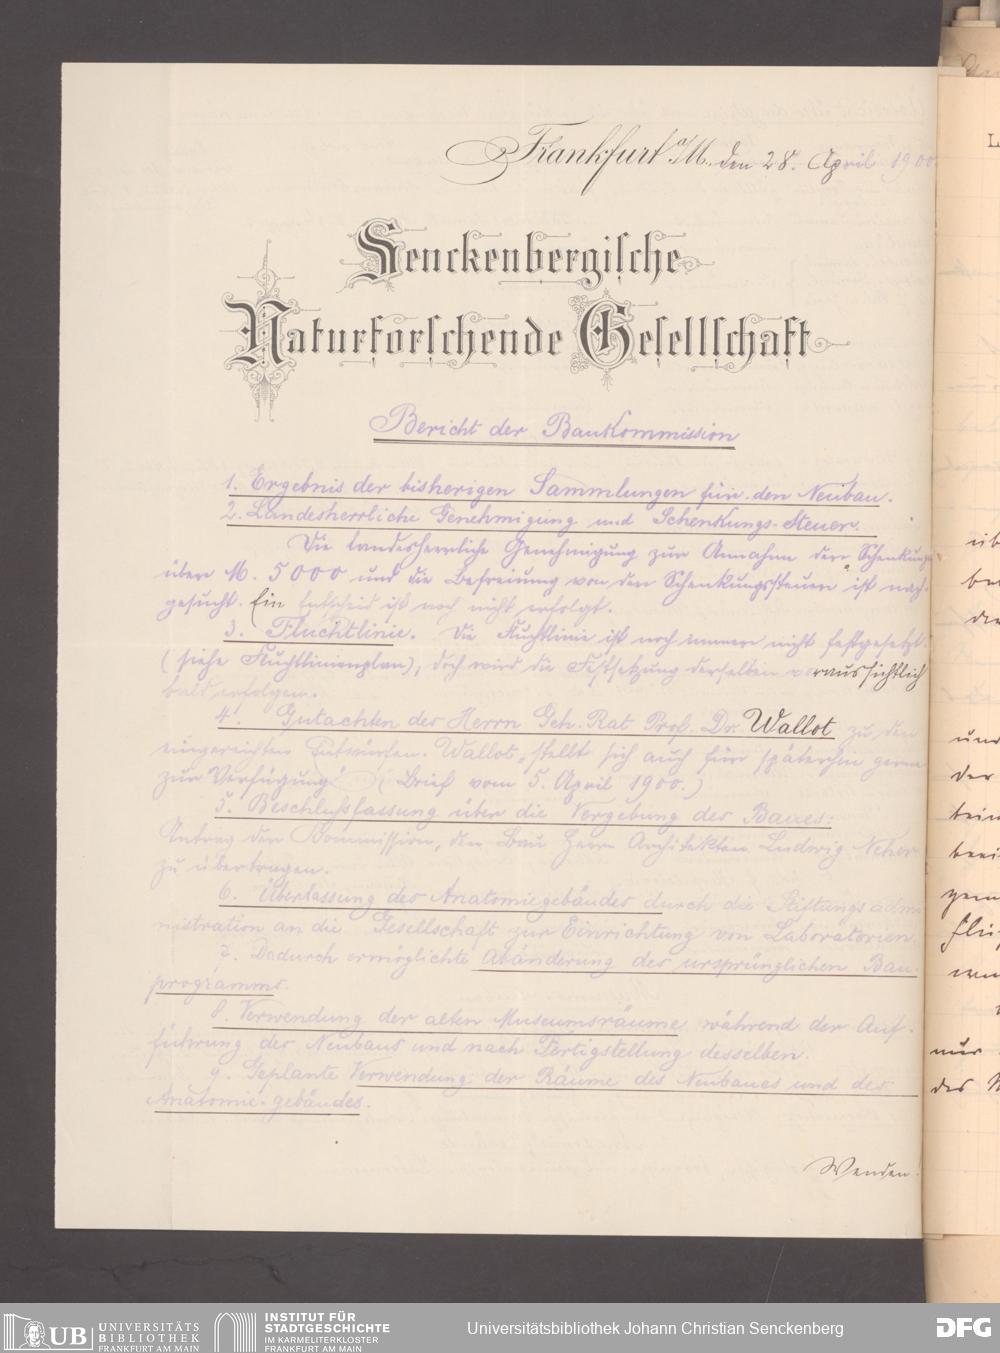 Frankfurt a/M., den 28. April 1900
Senckenbergische
Naturforschende Gesellschaft
Bericht der Baukommission
1. Ergebnis der bisherigen Sammlungen für den Neubau.
2. Landesherrliche Genehmigung und Schenkungs-Steuer.
Die landesherrliche Genehmigung zur Annahme der Schenkung
über M. 5000 und die Befreiung von der Schenkungssteuer ist nach-
gesucht. Ein Entscheid ist noch nicht erfolgt.
3. Fluchtlinie. Die Fluchtlinie ist noch immer nicht festgesetzt
(siehe Fluchtlinienplan), doch wird die Festsetzung derselben voraussichtlich
bald erfolgen.
4. Gutachten des Herrn Geh. Rat Prof. Dr. Wallot zu den
eingereichten Entwürfen. Wallot „stellt sich auch für späterhin gerne
zur Verfügung" (Brief vom 5. April 1900.)
5. Beschlußfassung über die Vergebung des Baues:
Antrag der Kommission, den Bau Herrn Architekten Ludwig Neher
zu übertragen.
6. Überlassung des Anatomiegebäudes durch die Stiftungsadmi
nistration an die Gesellschaft zur Einrichtung von Laboratorien
7. Dadurch ermöglichte Abänderung des ursprünglichen Bau-
programms.
8. Verwendung der alten Museumsräume während der Auf-
führung des Neubaus und nach Fertigstellung desselben.
9. Geplante Verwendung der Räume des Neubaues und des
Anatomie-gebäudes.
Wenden!
L
und
der
nur
des
UB UNIVERSITÄTS
BIBLIOTHEK
FRANKFURT AM MAIN
INSTITUT FÜR
STADTGESCHICHTE
IM KARMELITERKLOSTER
FRANKFURT AM MAIN
Universitätsbibliothek Johann Christian Senckenberg
DFG